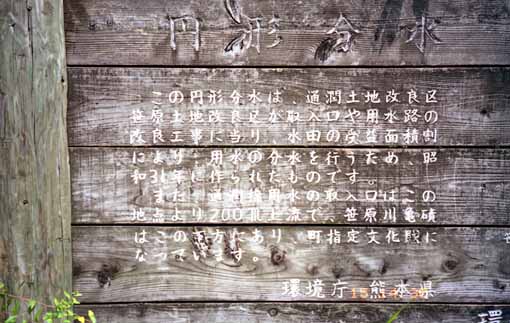 円形分水
この円形分水は、通潤土地改良区
笹原土地改良区が取入口や用水路の
改良工事に当り、水田の受益面積割
により、用水の分水を行うため、昭
和31年に作られたものです。
また、通潤橋用水の取入口はこの
地点より200m上流で、笹原川亀磧
はこの下方にあり、町指定文化財に
なっています。
環境庁・熊本県